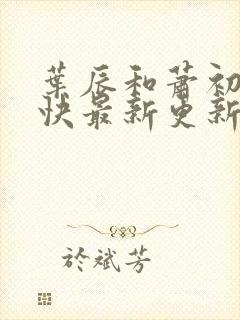 葉辰和蕭初
快最新更新
於斌芳